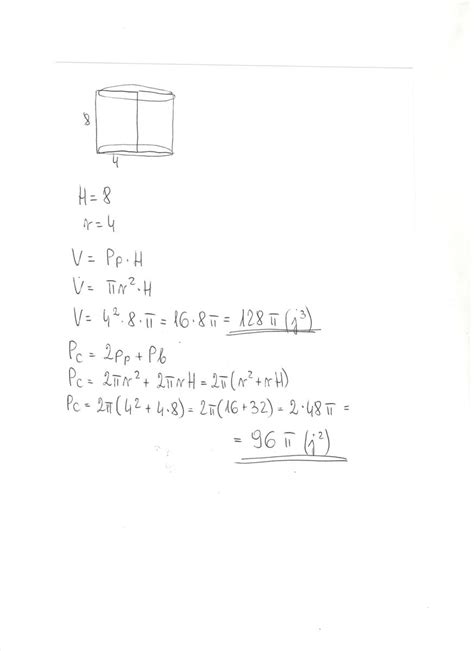 8
4
H = 8
r = 4
V = Pp · H
V = πr² · H
V = 4² · 8 · π = 16 · 8π = 128 π (j³)
Pc = 2Pp + Pb
Pc = 2πr² + 2πrH = 2π(r² + rH)
Pc = 2π(4² + 4·8) = 2π(16 + 32) = 2·48π =
= 96 π (j²)